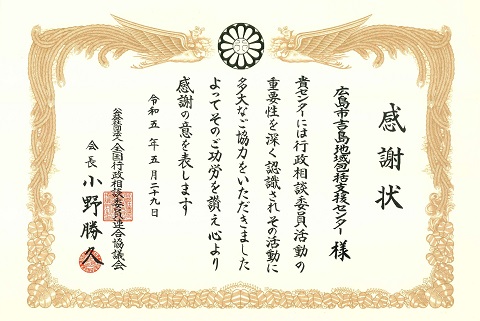 感謝状
広島市吉島地域包括支援センター 様
貴センターには行政相談委員活動の
重要性を深く認識されその活動に
多大なご協力をいただきました
よってそのご功労を讃え心より
感謝の意を表します
令和五年五月二十九日
公益社団法人全国行政相談委員連合協議会
会長 小野勝久